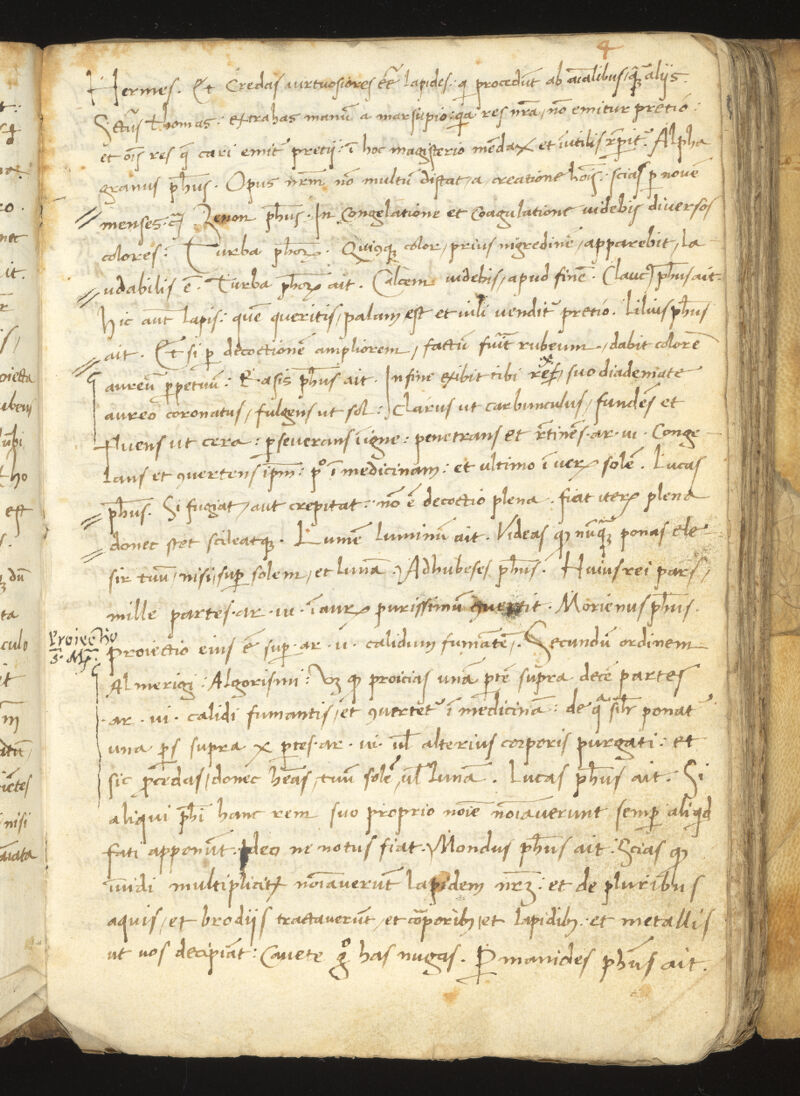 4
Hermes. Et Credas uirtuosiores eē lapides: q̄ procedūt ab aīalibus, q̄ȝ alijs.
Sctūs thomas: extrahas manū a marsupio: qa res nr̄a, nō emitur pretio:
et oīs res q̄ cari emit̄ pretij: ī hoc magisterio mēdax et īutilis rp̄erit̄. Alpha
granus ph̄us. Opus nr̄m nō multū distat, a, creatione hoīs: scias p̄ nouē
menses. Zenon ph̄us. In Congelatione et Coagulatione uidebis diuersos
colores: Turba ph̄oꝝ. Quicq̄ color, prius nigredinē, apparebit, la
udabilis ē. Turba ph̄oꝝ ait. Calcem uidebis, apud finē. ph̄us ait.
Hic aut̄ lapis: quē queritis, palam est et uili uendit̄ pretio. Lilius ph̄us
ait. Et si p̄ decoctionē ampliorem, factū fuīt rubeum, dabit colorē
aureū p̄petuū: ph̄us ait. In fine exibit tibi rex, suo diademate
aureo coronatus, fulgens ut sol: Clarus ut carbunculus, fundēs et
fluens ut cera: p̄seuerans ī igne: penetrans et r̄tinēs .ar. ui. Conge
lans et ꝯuertens ip̄m: p° ī medicinam: et ultimo ī ueꝝ solē. Lucas
ph̄us. Si fugiat, aut crepitat: nō ē decoctio plena. fiat iteꝝ plena
donec stet sileatq̄. Lumē luminū ait. Videas q̄ nūq̄ȝ ponas ele
sir tuū, nisi, sup̄ solem, et lunā. ph̄us. Huius rei pars,
mille partes .ar. ui. ī auꝝ purissimū ꝯuertit. Morienus ph̄us.
Proiectio
Proiectio eius ē sup̄ .ar. u. calidum fumātē. Secundū ordinem
Almerigi: Algorismi: Vȝ q̄ proicias unā p̄tē supra decē partes
.ar. ui. calidi fumantis, et ꝯuertet̄ ī medicinā: de q̄ sil̄r ponat̄
una p̄s supra x p̄tes .ar. ui. ul̄ alterius corporis purgati: et
sic p̄cedas, donec hēas, tuū solē, ul̄ lunā. Lucas ph̄us ait. Si
aliqui ph̄i hanc rem suo proprio noīe noīauerunt semp̄ aliqd
fati apponūt. Ideo ne notus fiat. Mondus ph̄us ait. Scias q̄
īuidi multiplicit̄ noīauerūt lapidem nr̄ȝ: et de pluribus
aquis, et brodijs tractauerūt, et cōporibȝ et lapidibȝ: et metallis
ut uos decipiāt: Cauete g° has nugas. P̄manides ph̄us ait.